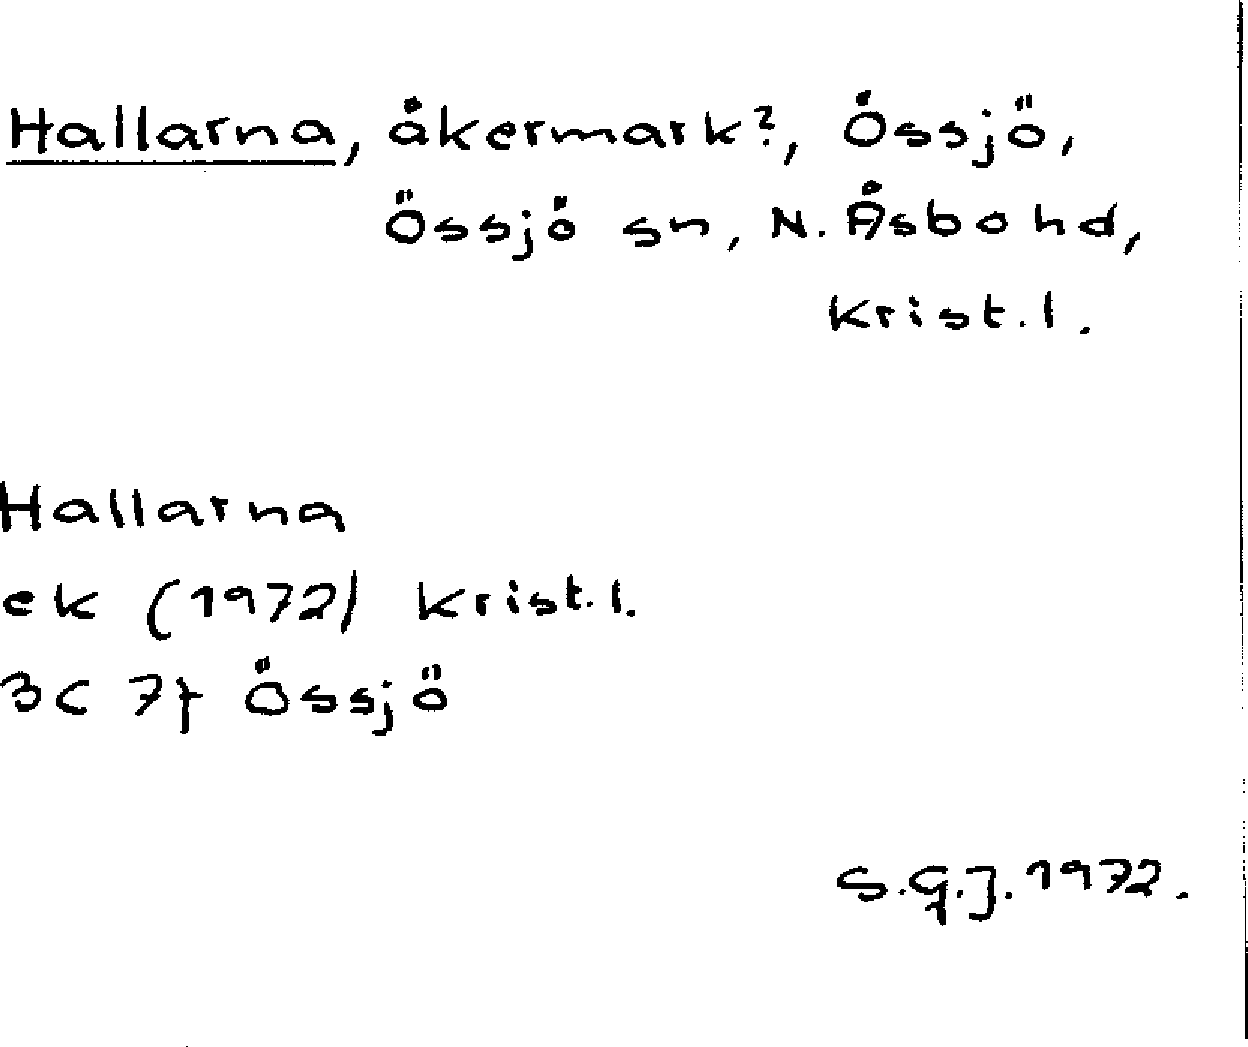 Hallarna, åkermark?, Össjö,
Össjö sn, N. Åsbohd,
Krist.l.
Hallarna
ek (1972) Krist.l.
3C 7f Össjö
S.G.J. 1972.